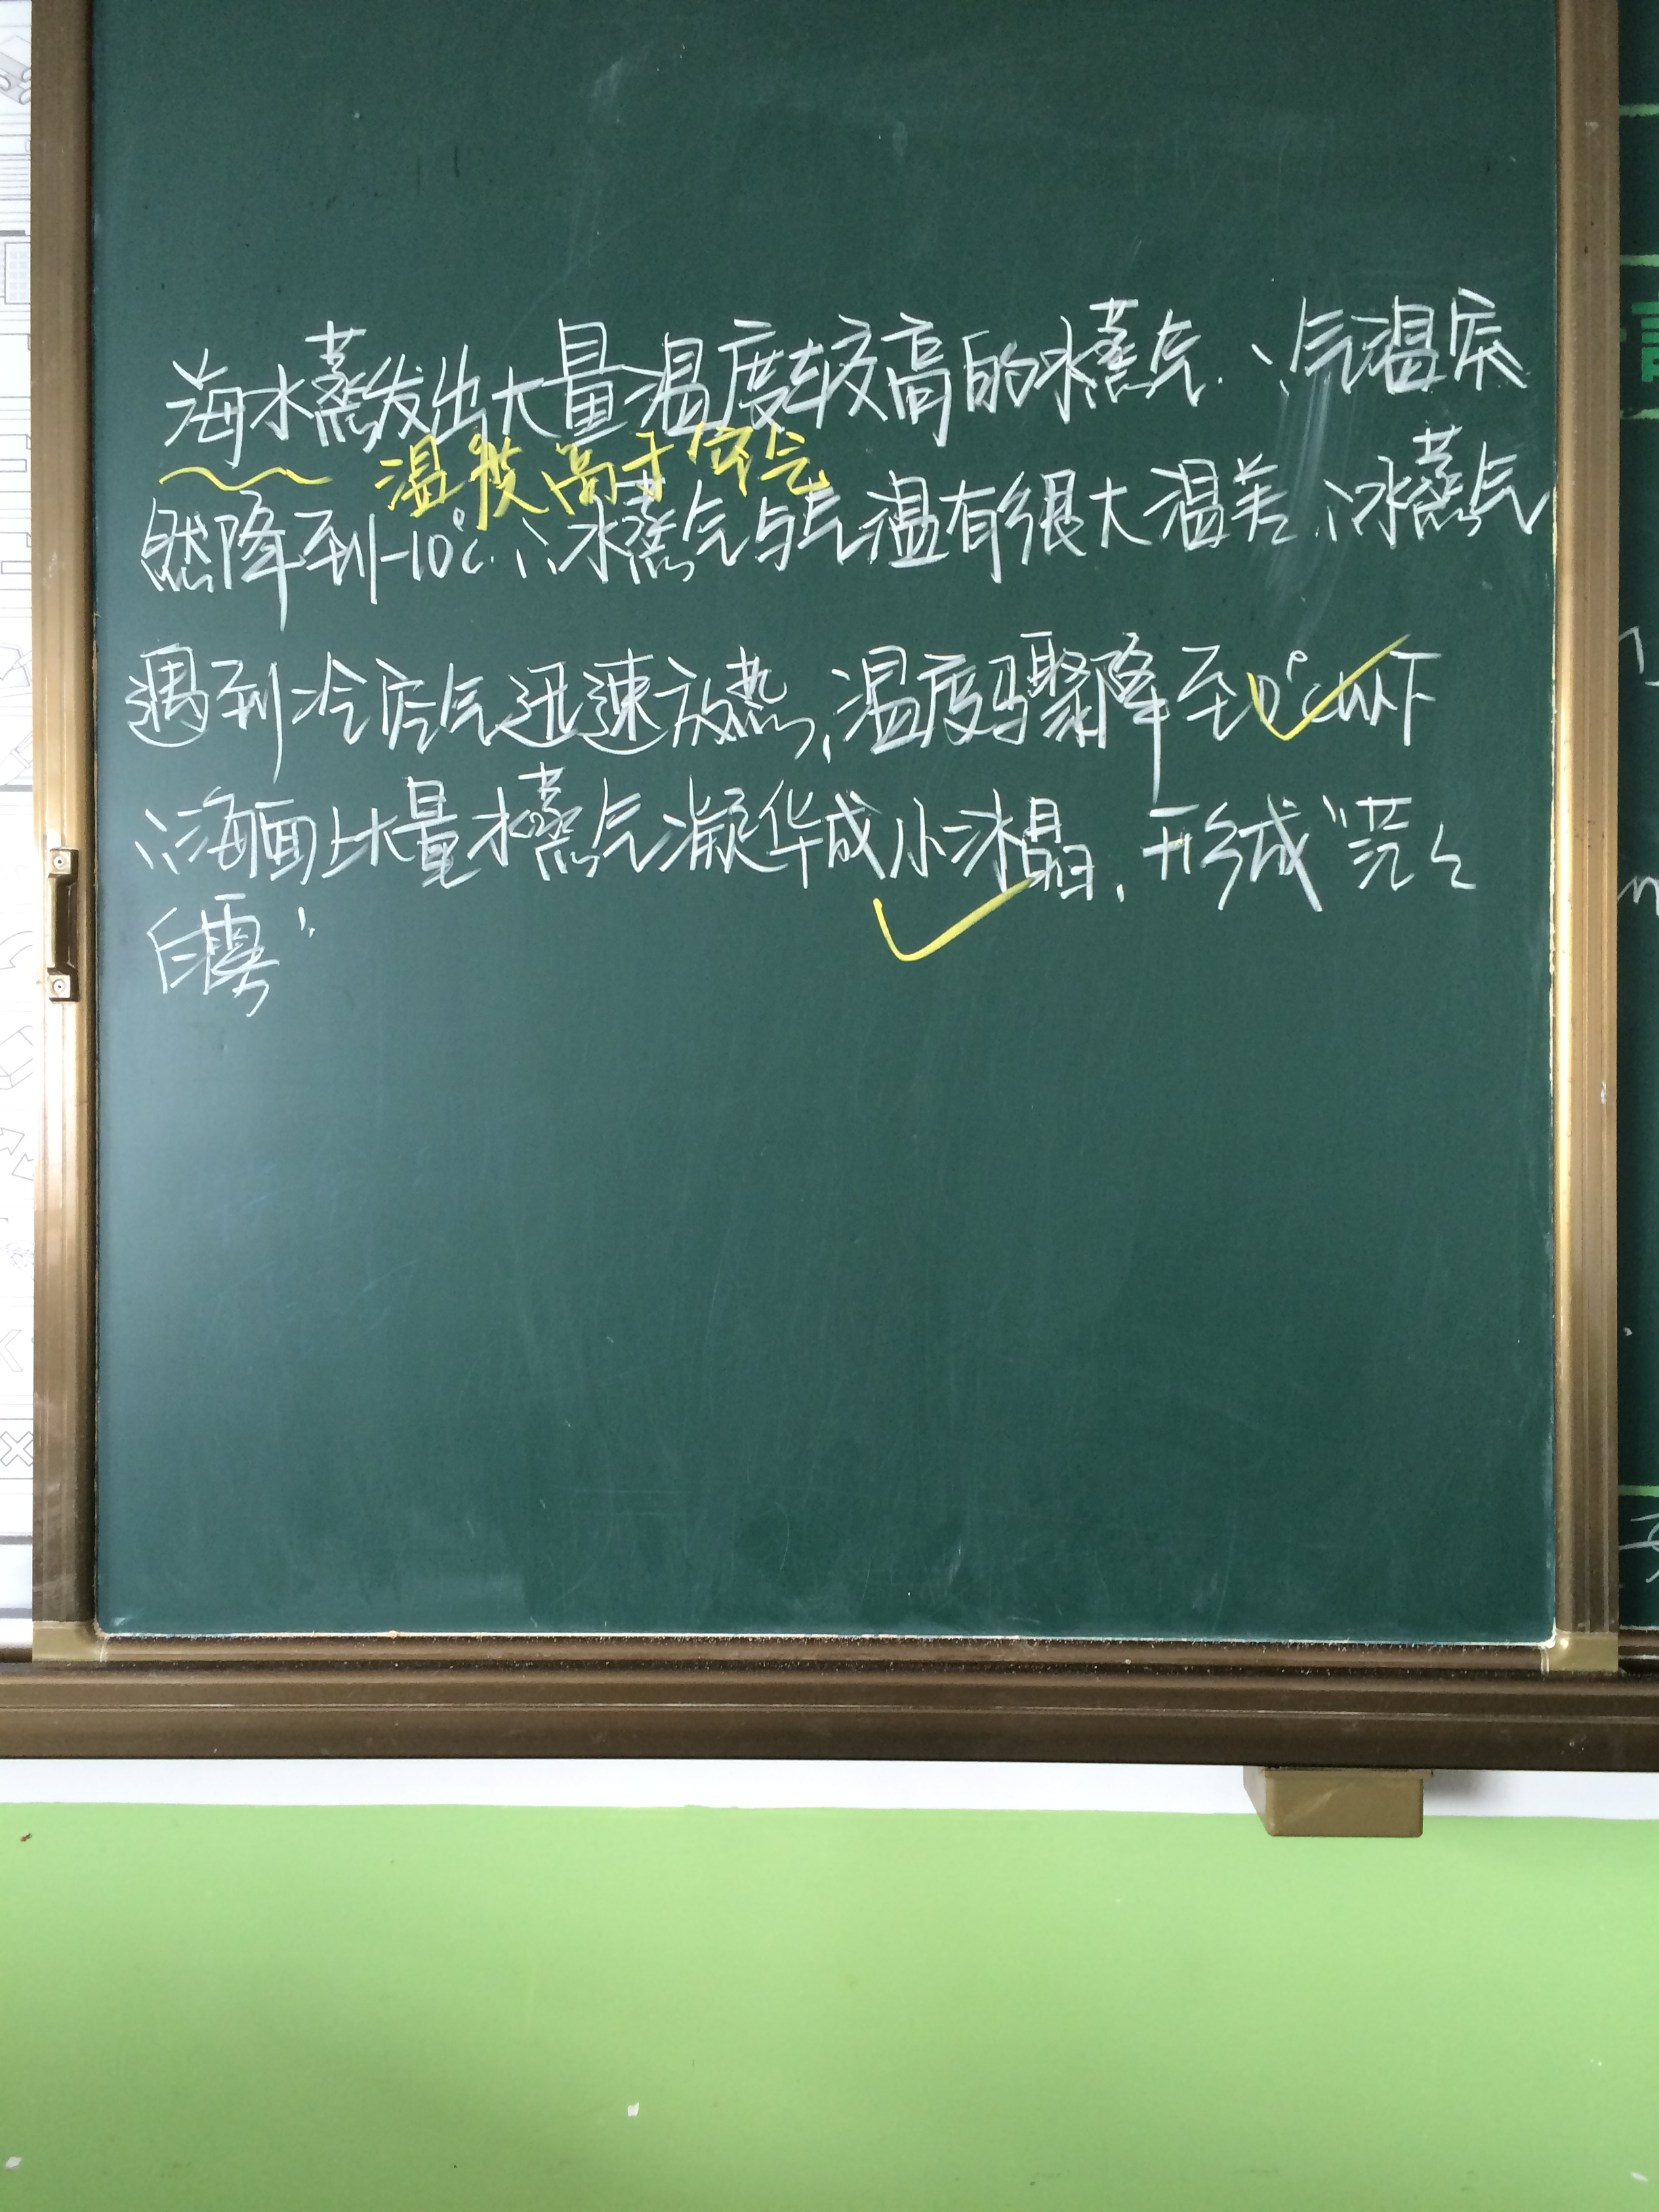 海水蒸发出大量温度较高的水蒸气.∵气温
温度高于空气
然降到-10℃.∴水蒸气与气温有很大温差,∴水蒸气
遇到冷空气迅速放热,温度骤降至0℃以下
∴海面上大量水蒸气凝华成小冰晶,形成“茫々
白雾”